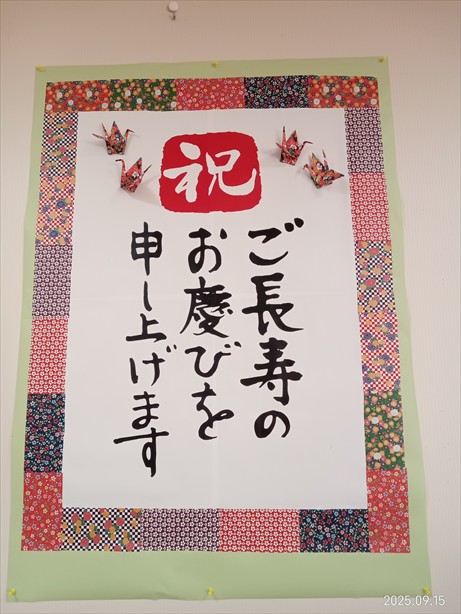 祝
ご長寿の
お慶びを
申し上げます
2025.09.15